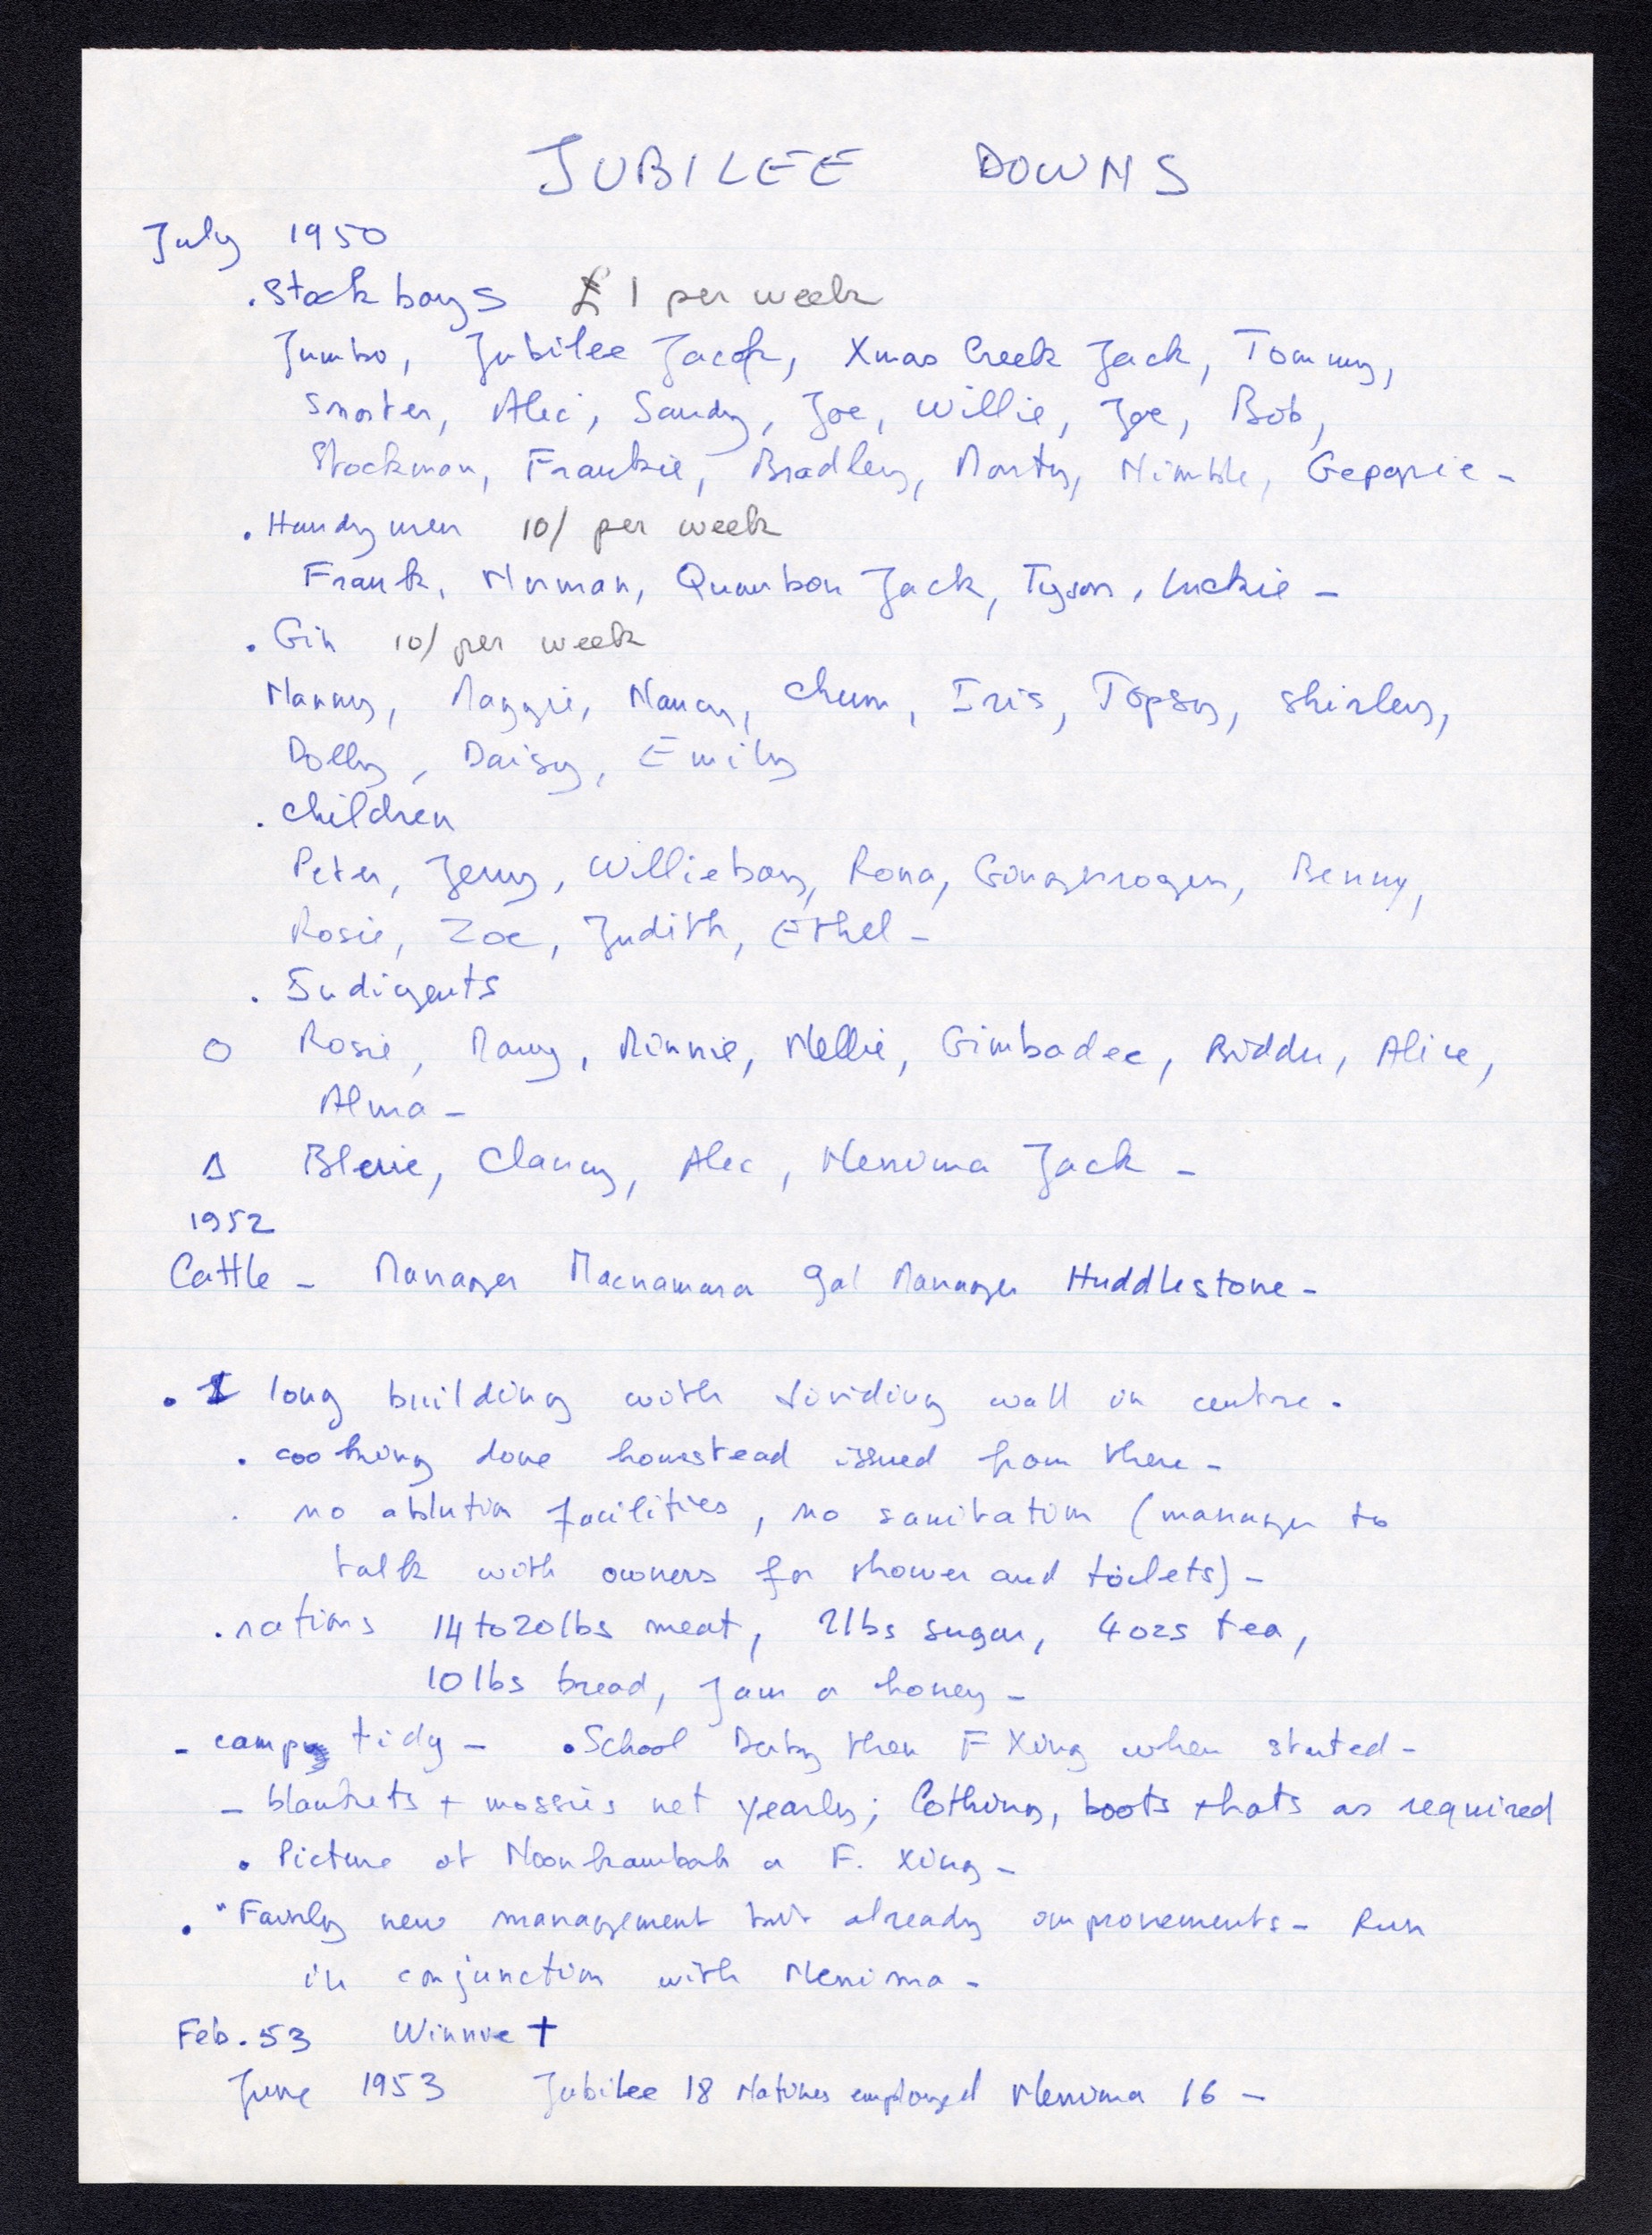 JUBILEE DOWNS
July 1950
. Stock boys £1 per week
Jumbo, Jubilee Jack, Xmas Creek Jack, Tommy,
Alec, Sandy, Joe, Willie, Joe, Bob,
Stockman, Frankie, Bradley, Monty, Nimble,
. Handymen 10/ per week
Frank, Norman, Quanbon Jack, Tyson, Luckie -
. Gin 10/ per week
Nanny, Maggie, Nancy, Chum, Iris, Topsy, Shirley,
Dolly, Daisy, Emily
. children
Peter, Jerry, Willieboy, Rona, Benny,
Rosie, Zoe, Judith, Ethel -
. Indigents
O Rosie, Mary, Minnie, Nellie, Gimbadee, Alice,
Alma -
Δ Clancy, Alec, Nerrima Jack -
1952
Cattle - Manager Macnamara gal Manager Huddlestone -
. 1 long building with dividing wall in centre .
. cooking done homestead issued from there -
. no ablution facilities, no sanitation (manager to
talk with owners for shower and toilets) -
. rations 14 to 20 lbs meat, 2 lbs sugar, 4 ozs tea,
10 lbs bread, jam or honey -
- camp tidy - . School Derby then F Xing when started -
- blankets + mossies net yearly; Cothing, boots + hats as required
. Picture at Noonkambah or F. Xing -
. "Fairly new management but already improvements - Run
in conjunction with Nerrima -
Feb. 53 Winnie †
June 1953 Jubilee 18 Natives employed Nerrima 16 -